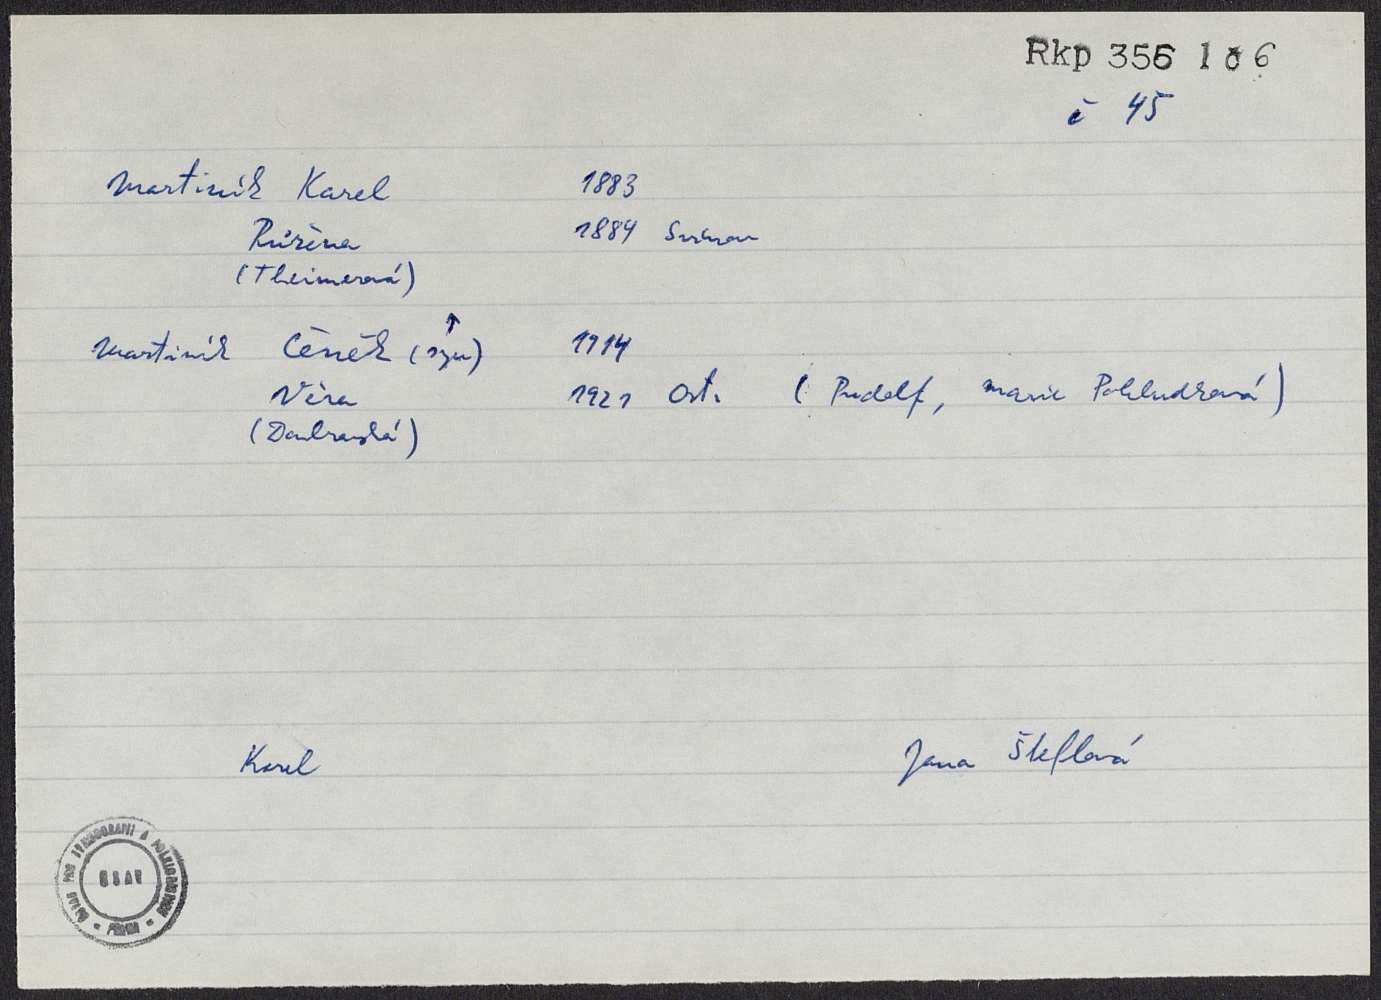 Rkp 356 1 č 6
č 45
Martiník Karel 1883
Růžena 1884 Svinov
(Theimerová)
↑
Martiník Čeněk (syn) 1914
Věra 1921 Ost. (Rudolf, Marie Pohludková)
(Doubravská)
Karel Jana Šteflová
ÚSTAV PRO ETNOGRAFII A FOLKLORISTIKU
ČSAV
PRAHA